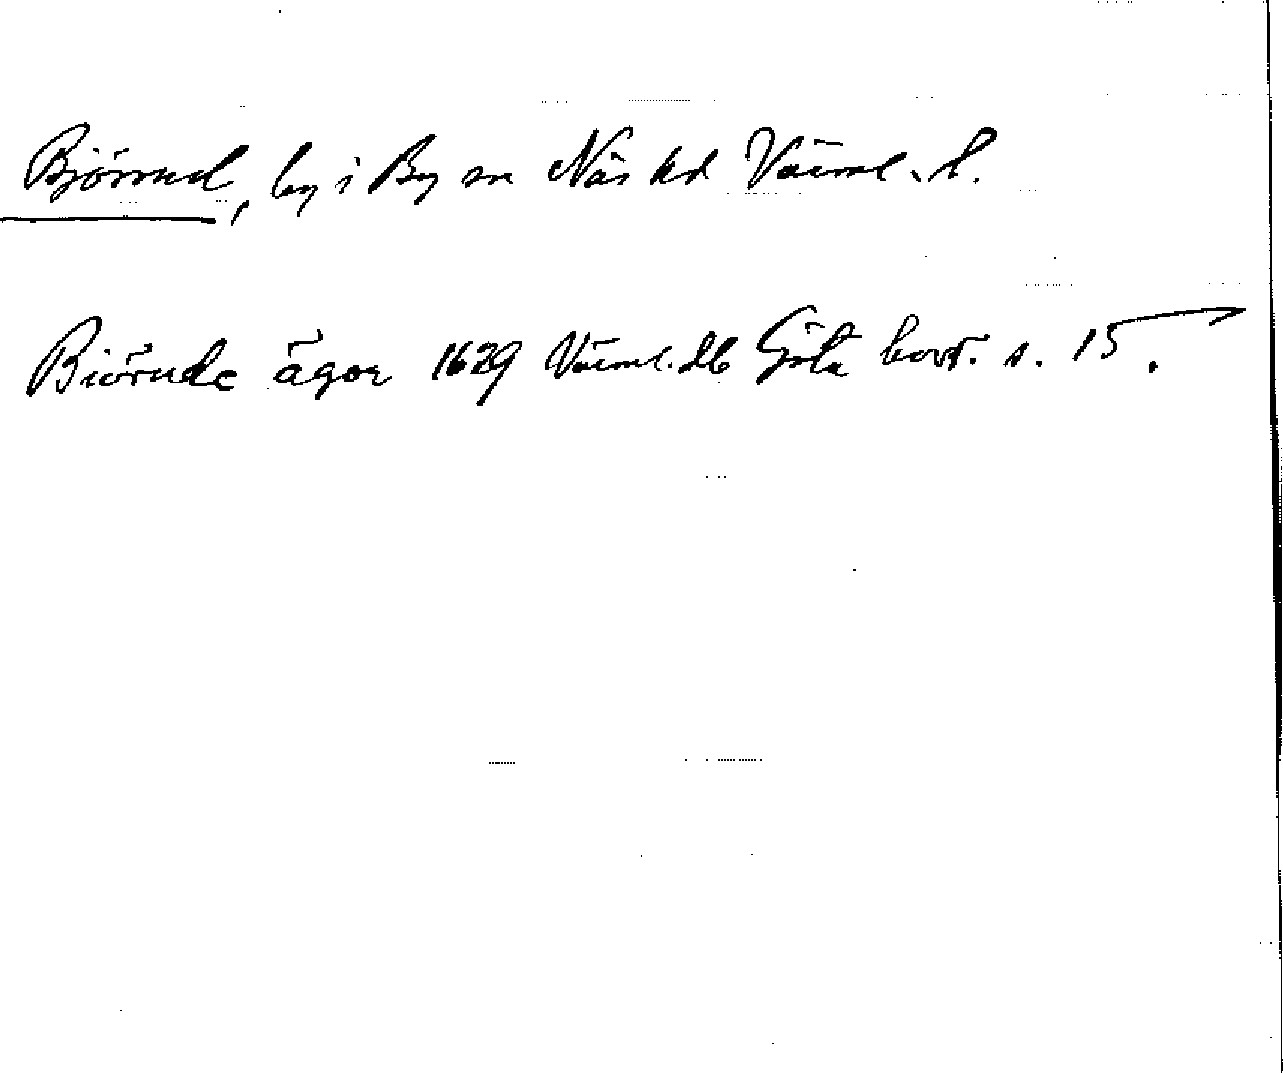 Björnud, by i By sn Näs hd Värml. l.
Biörude ägor 1629 Värml. db Göta hovr. s. 15.